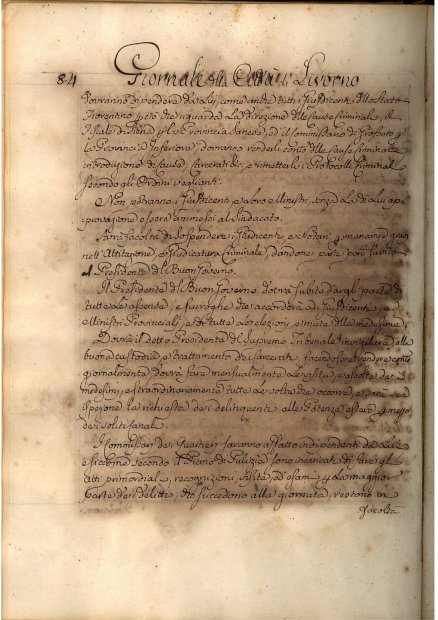 84 Giornale della Città di Livorno
dovranno dipendere da lui, come anche tutti i Giusdicenti dello Stato
Fiorentino per ciò che riguarda la direzione delle cause criminali, il
Fiscale di Siena per la Provincia Sanese, ed il Commissario di Grosseto per la
Provincia Inferiore, dovranno renderli conto delle cause criminali
introduzione di cause, carcerati &c, e rimetterli i Protocolli Criminali
secondo gli Ordini veglianti.
Non potranno i Giusdicenti, e loro Ministri senza la di lui ap-
provazione essere ammessi al Sindacato.
Avrà facoltà di sospendere i Giusdicenti e Notari per mancanze gravi
nell'Attitazione, e Giudicatura Criminale, dandone parte però subito
al Presidente del Buon Governo.
Il Presidente del Buon Governo dovrà subito dargli parte di
tutte le assenze, e surroghe che accorderà ai Giusdicenti, e
Ministri Provinciali, e di tutte le elezioni, e mute delle medesime.
Dovrà il detto Presidente del Supremo Tribunale invigilare alla
buona custodia e trattamento dei carcerati, facendosene rendere conto
giornalmente, dovrà fare mensualmente la visita, e ascolta dei
medesimi, e straordinariamente tutte le volte che occorre, e fare
le richieste dei delinquenti alle Potenze estere per mezzo
dei soliti canali.
I Commissari dei Quartieri saranno affatto indipendenti da lui
e siccome secondo il Piano di Pulizia sono incaricati di fare gli
Atti primordiali, recognizioni, visite, ed esami per la maggior
parte dei delitti, che succedono alla giornata, restono in
facoltà